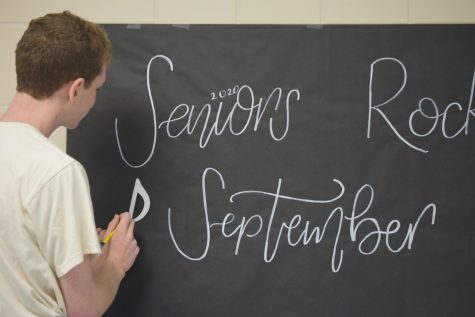 2020
Seniors Rock
September